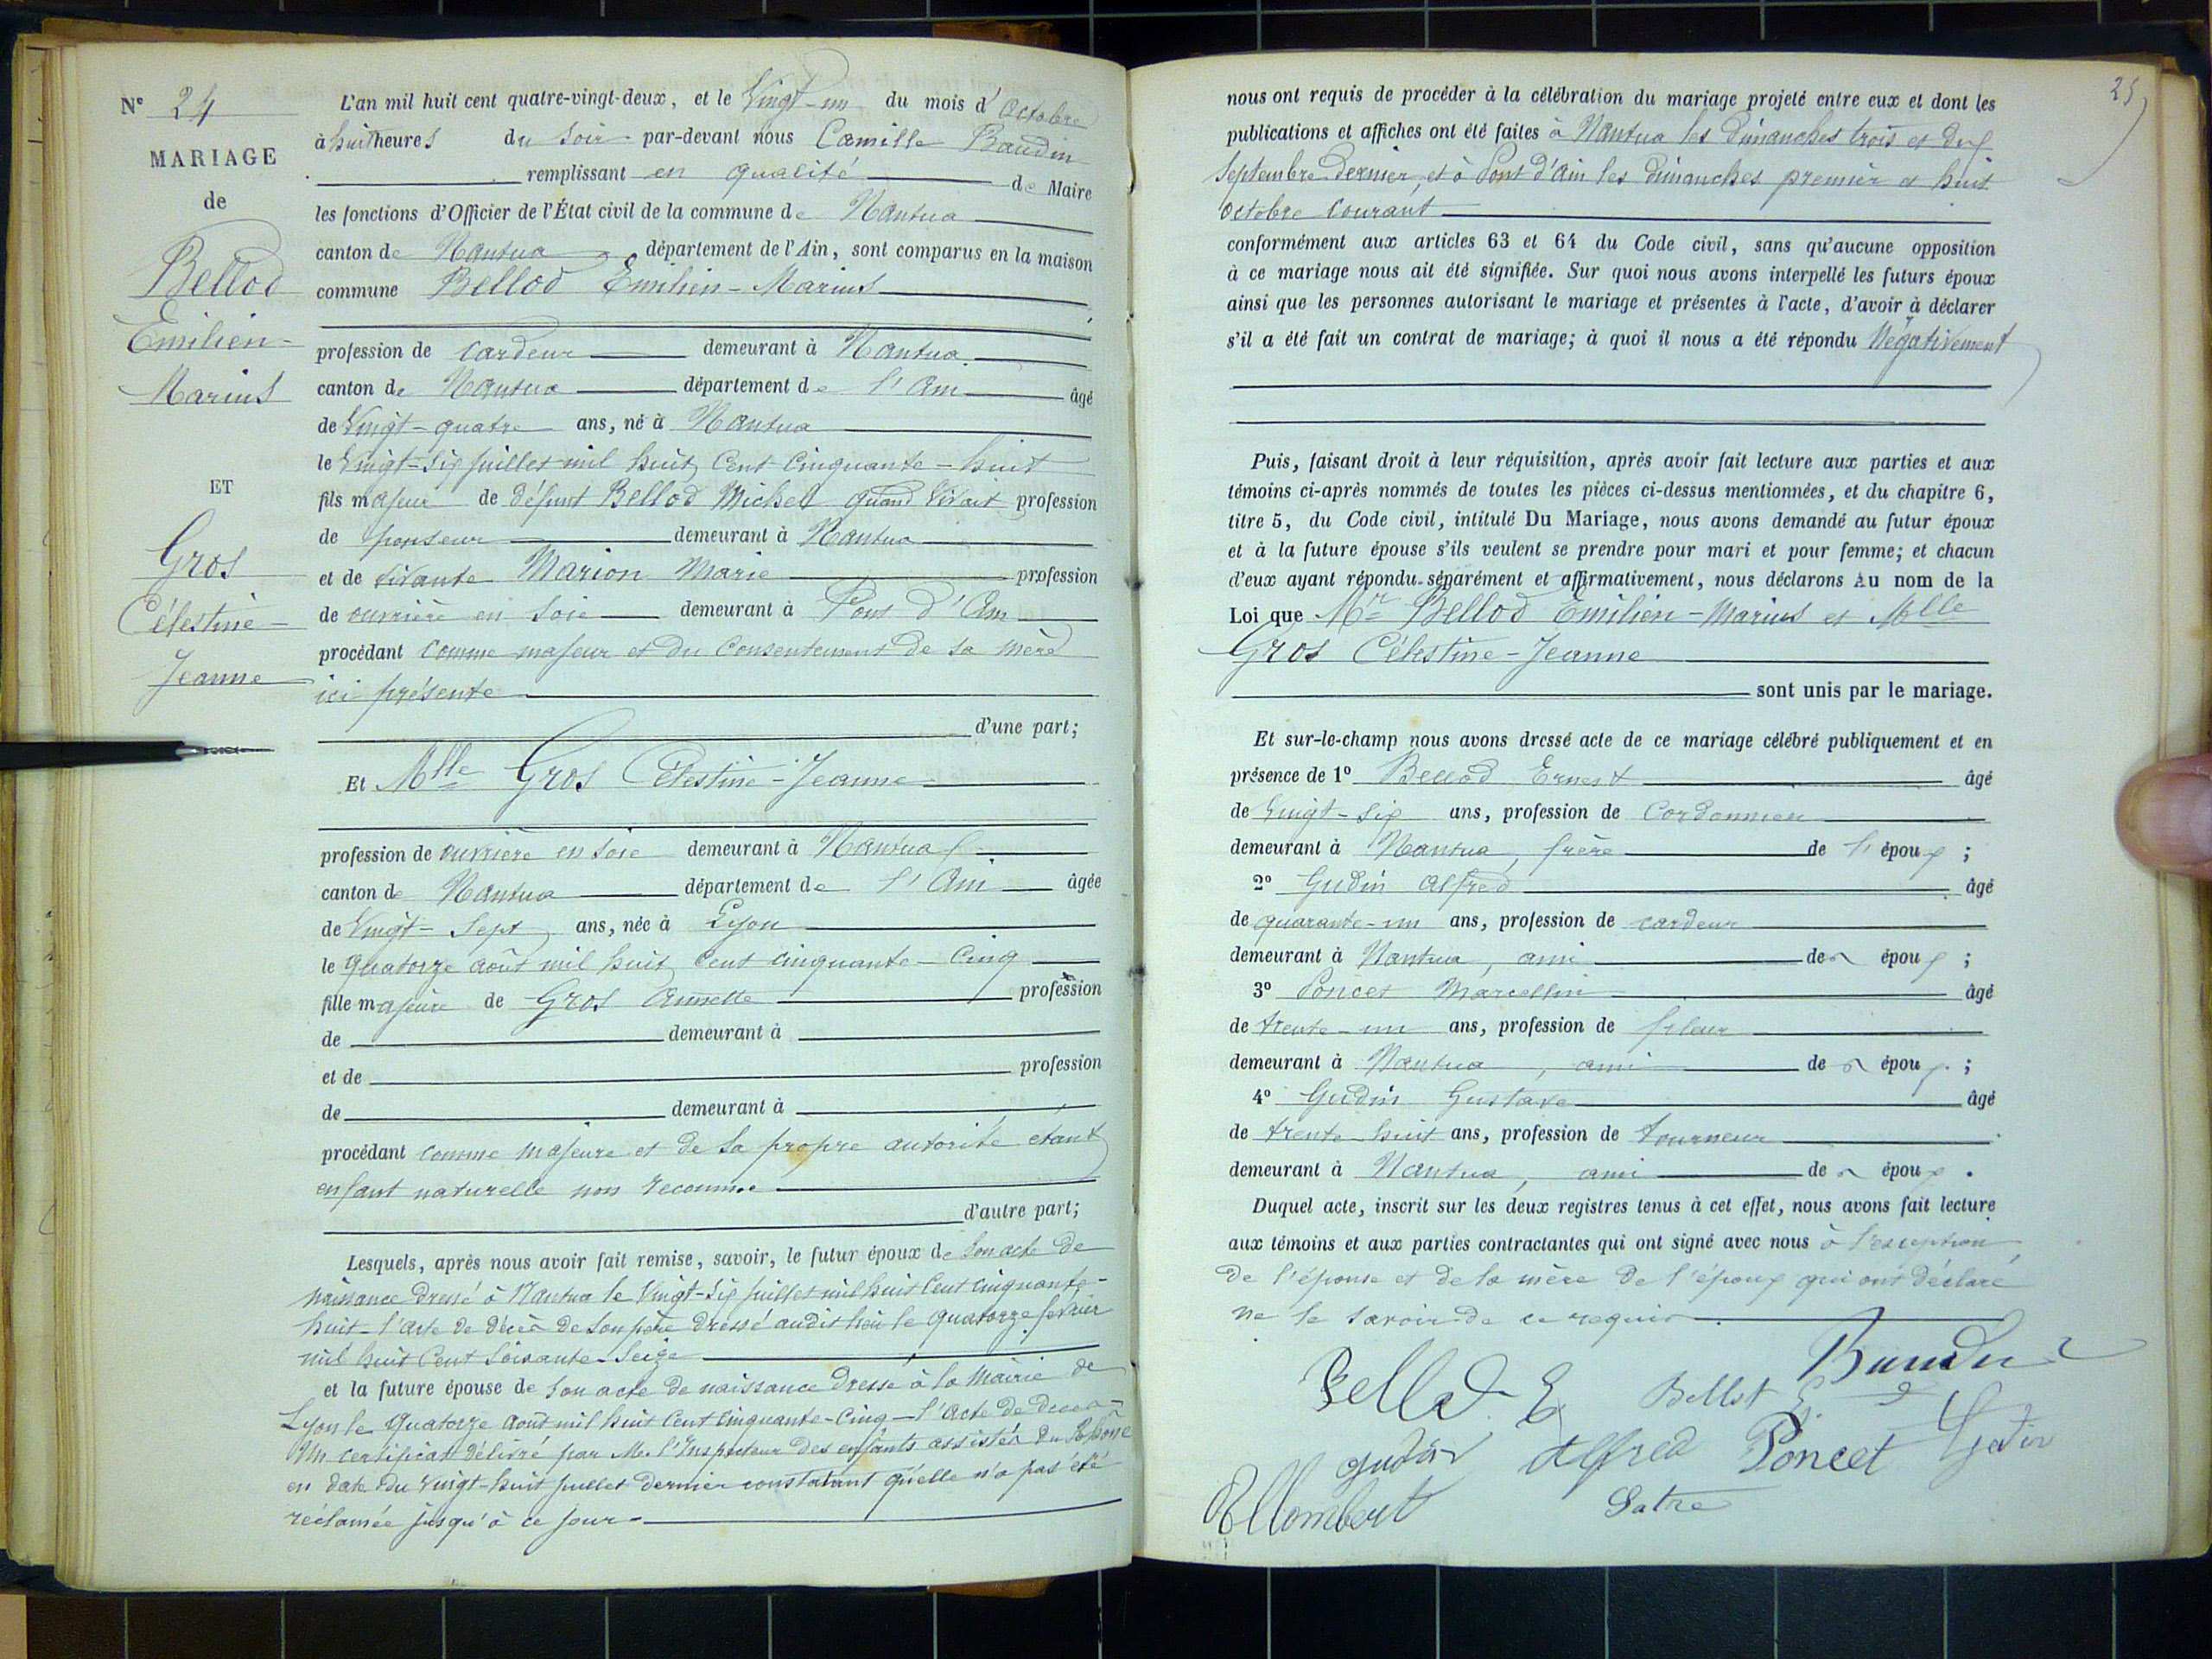 N° 24
MARIAGE
de
Bellod
Emilien-
Marius
ET
Gros
Célestine-
Jeanne
L'an mil huit cent quatre-vingt-deux, et le Vingt-un du mois d'Octobre
à huit heures du soir par-devant nous Camille Baudin
remplissant en qualité de Maire
les fonctions d'Officier de l'État civil de la commune de Nantua
canton de Nantua, département de l'Ain, sont comparus en la maison
commune Bellod Emilien-Marius
profession de cardeur demeurant à Nantua
canton de Nantua département de l'Ain âgé
de Vingt-quatre ans, né à Nantua
le Vingt-six juillet mil huit Cent Cinquante-huit
fils majeur de défunt Bellod Michel quand vivait profession
de demeurant à Nantua
et de vivante Marion Marie profession
de ouvrière en soie demeurant à Pont d'Ain
procédant comme majeur et du Consentement de sa mère
ici présente
d'une part;
Et Mlle Gros Célestine-Jeanne
profession de ouvrière en soie demeurant à Nantua
canton de Nantua département de l'Ain âgée
de Vingt-Sept ans, née à Lyon
le quatorze août mil huit Cent cinquante-Cinq
fille majeure de Gros Annette profession
de demeurant à
et de profession
de demeurant à
procédant comme majeure et de sa propre autorité étant
enfant naturelle non reconnue
d'autre part;
Lesquels, après nous avoir fait remise, savoir, le futur époux de son acte de
naissance dressé à Nantua le Vingt-six juillet mil huit Cent cinquante-
huit - l'acte de décès de son père dressé audit lieu le quatorze février
mil huit Cent Soixante-Seize
et la future épouse de son acte de naissance dressé à la Mairie de
Lyon le Quatorze Août mil huit Cent Cinquante-Cinq - l'acte de décès
Un certificat délivré par Mr l'Inspecteur des enfants assistés du Rhône
en date du vingt-huit juillet dernier constatant qu'elle n'a pas été
réclamée jusqu'à ce jour-
25
nous ont requis de procéder à la célébration du mariage projeté entre eux et dont les
publications et affiches ont été faites à Nantua les dimanches trois et dix
Septembre dernier, et à Pont d'Ain les dimanches premier et huit
octobre courant
conformément aux articles 63 et 64 du Code civil, sans qu'aucune opposition
à ce mariage nous ait été signifiée. Sur quoi nous avons interpellé les futurs époux
ainsi que les personnes autorisant le mariage et présentes à l'acte, d'avoir à déclarer
s'il a été fait un contrat de mariage; à quoi il nous a été répondu Négativement
Puis, faisant droit à leur réquisition, après avoir fait lecture aux parties et aux
témoins ci-après nommés de toutes les pièces ci-dessus mentionnées, et du chapitre 6,
titre 5, du Code civil, intitulé Du Mariage, nous avons demandé au futur époux
et à la future épouse s'ils veulent se prendre pour mari et pour femme; et chacun
d'eux ayant répondu séparément et affirmativement, nous déclarons Au nom de la
Loi que Mr Bellod Emilien-Marius et Mlle
Gros Célestine-Jeanne
sont unis par le mariage.
Et sur-le-champ nous avons dressé acte de ce mariage célébré publiquement et en
présence de 1° Bellod Ernest âgé
de Vingt-six ans, profession de Cordonnier
demeurant à Nantua, frère de l'époux;
2° Gudin Alfred âgé
de quarante-un ans, profession de cardeur
demeurant à Nantua, ami de époux;
3° Poncet Marcellin âgé
de trente-un ans, profession de fileur
demeurant à Nantua, ami de époux;
4° Gudin Gustave âgé
de trente huit ans, profession de tourneur
demeurant à Nantua, ami de époux.
Duquel acte, inscrit sur les deux registres tenus à cet effet, nous avons fait lecture
aux témoins et aux parties contractantes qui ont signé avec nous à l'exception
de l'épouse et de la mère de l'époux qui ont déclaré
ne le savoir de ce requis.
Bellod E Bellod E Baudin
gudin Alfred Poncet Gudin
Allombert